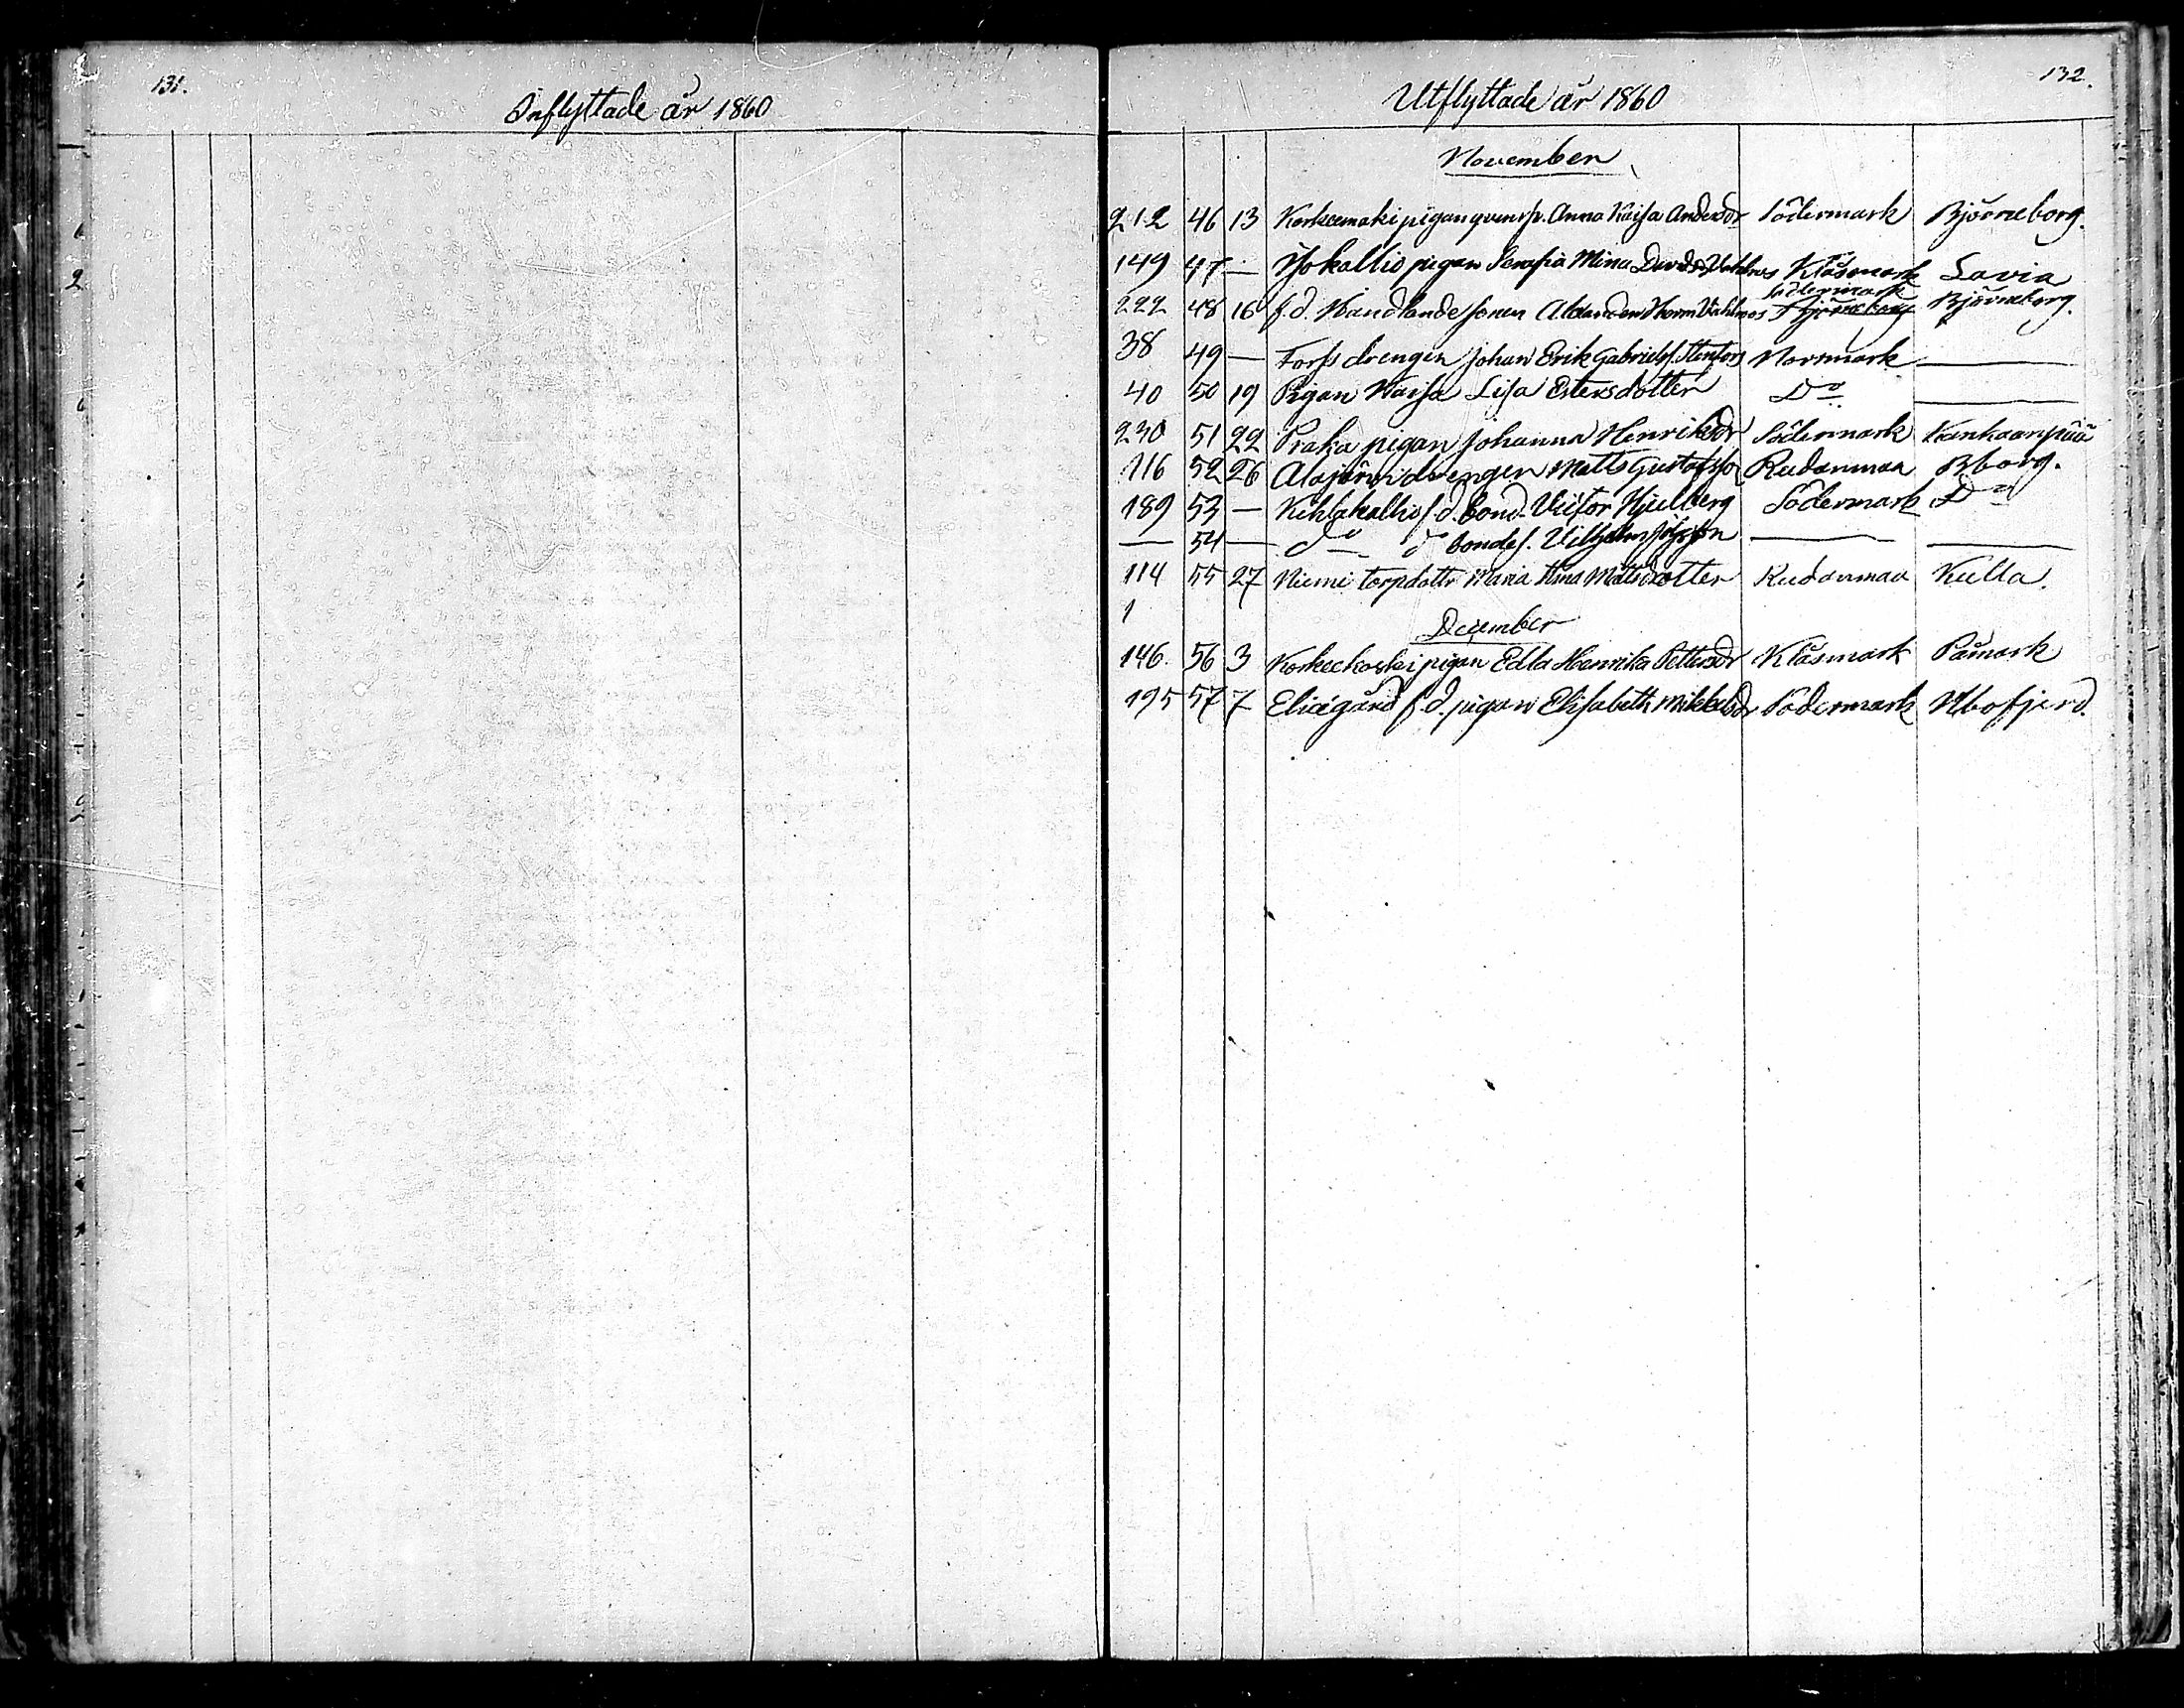 131.
Inflyttade år 1860
132.
Utflyttade år 1860
November
212 46 13 Korkeemaki pigan qvarsp. Anna Kaisa Andersdr Södermark Björneborg.
149 47 — Isokallio pigan Serafia Mina Davidsdr Klåsmark Lavia
Södermark
222 48 16 f.d. Handlande sonen Herm Vahlroos Björneborg Björneborg.
38 49 — Forss drengen Johan Erik Gabrielss. Stenfors Norrmark —
40 50 19 Pigan Kaisa Lisa Estersdotter Do —
230 51 22 Praka pigan Johanna Henriksdr Södermark Kankaanpää
116 52 26 Alajärvi drengen Matts Gustafsson Rudanmaa Bborg.
189 53 — f.d. bond. Victor Hjulberg Södermark Do
— 54 — do do bondes. Vilhelm — —
114 55 27 Niemi torpdottr Maria Stina Mattsdotter Rudanmaa Kulla.
1
December
146. 56 3 Koskeekoski pigan Edla Henrika Pettersdr Klåsmark Påmark
195 57 7 f.d. pigan Elisabeth Mikkelsdr Södermark Hbofjerd.